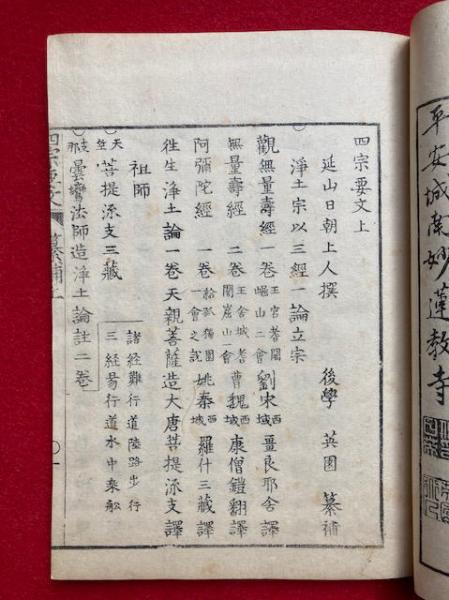 平安城南妙蓮教寺
四宗要文上
延山日朝上人撰 後學 英園 纂補
淨土宗以三經一論立宗
觀無量壽經一卷 王宮耆闍 崛山二會 劉宋 西域 畺良耶舍譯
無量壽經二卷 王舍城耆 闍崛山一會 曹魏 西域 康僧鎧翻譯
阿彌陀經一卷 給孤獨園 一會之説 姚秦 西域 羅什三藏譯
徃生淨土論一卷天親菩薩造大唐菩提流支譯
祖師
天竺 菩提流支三藏 諸経難行道陸路歩行
三経易行道水中乘舩
支那 曇鸞法師造淨土論註二卷
四宗要文 纂補上 一